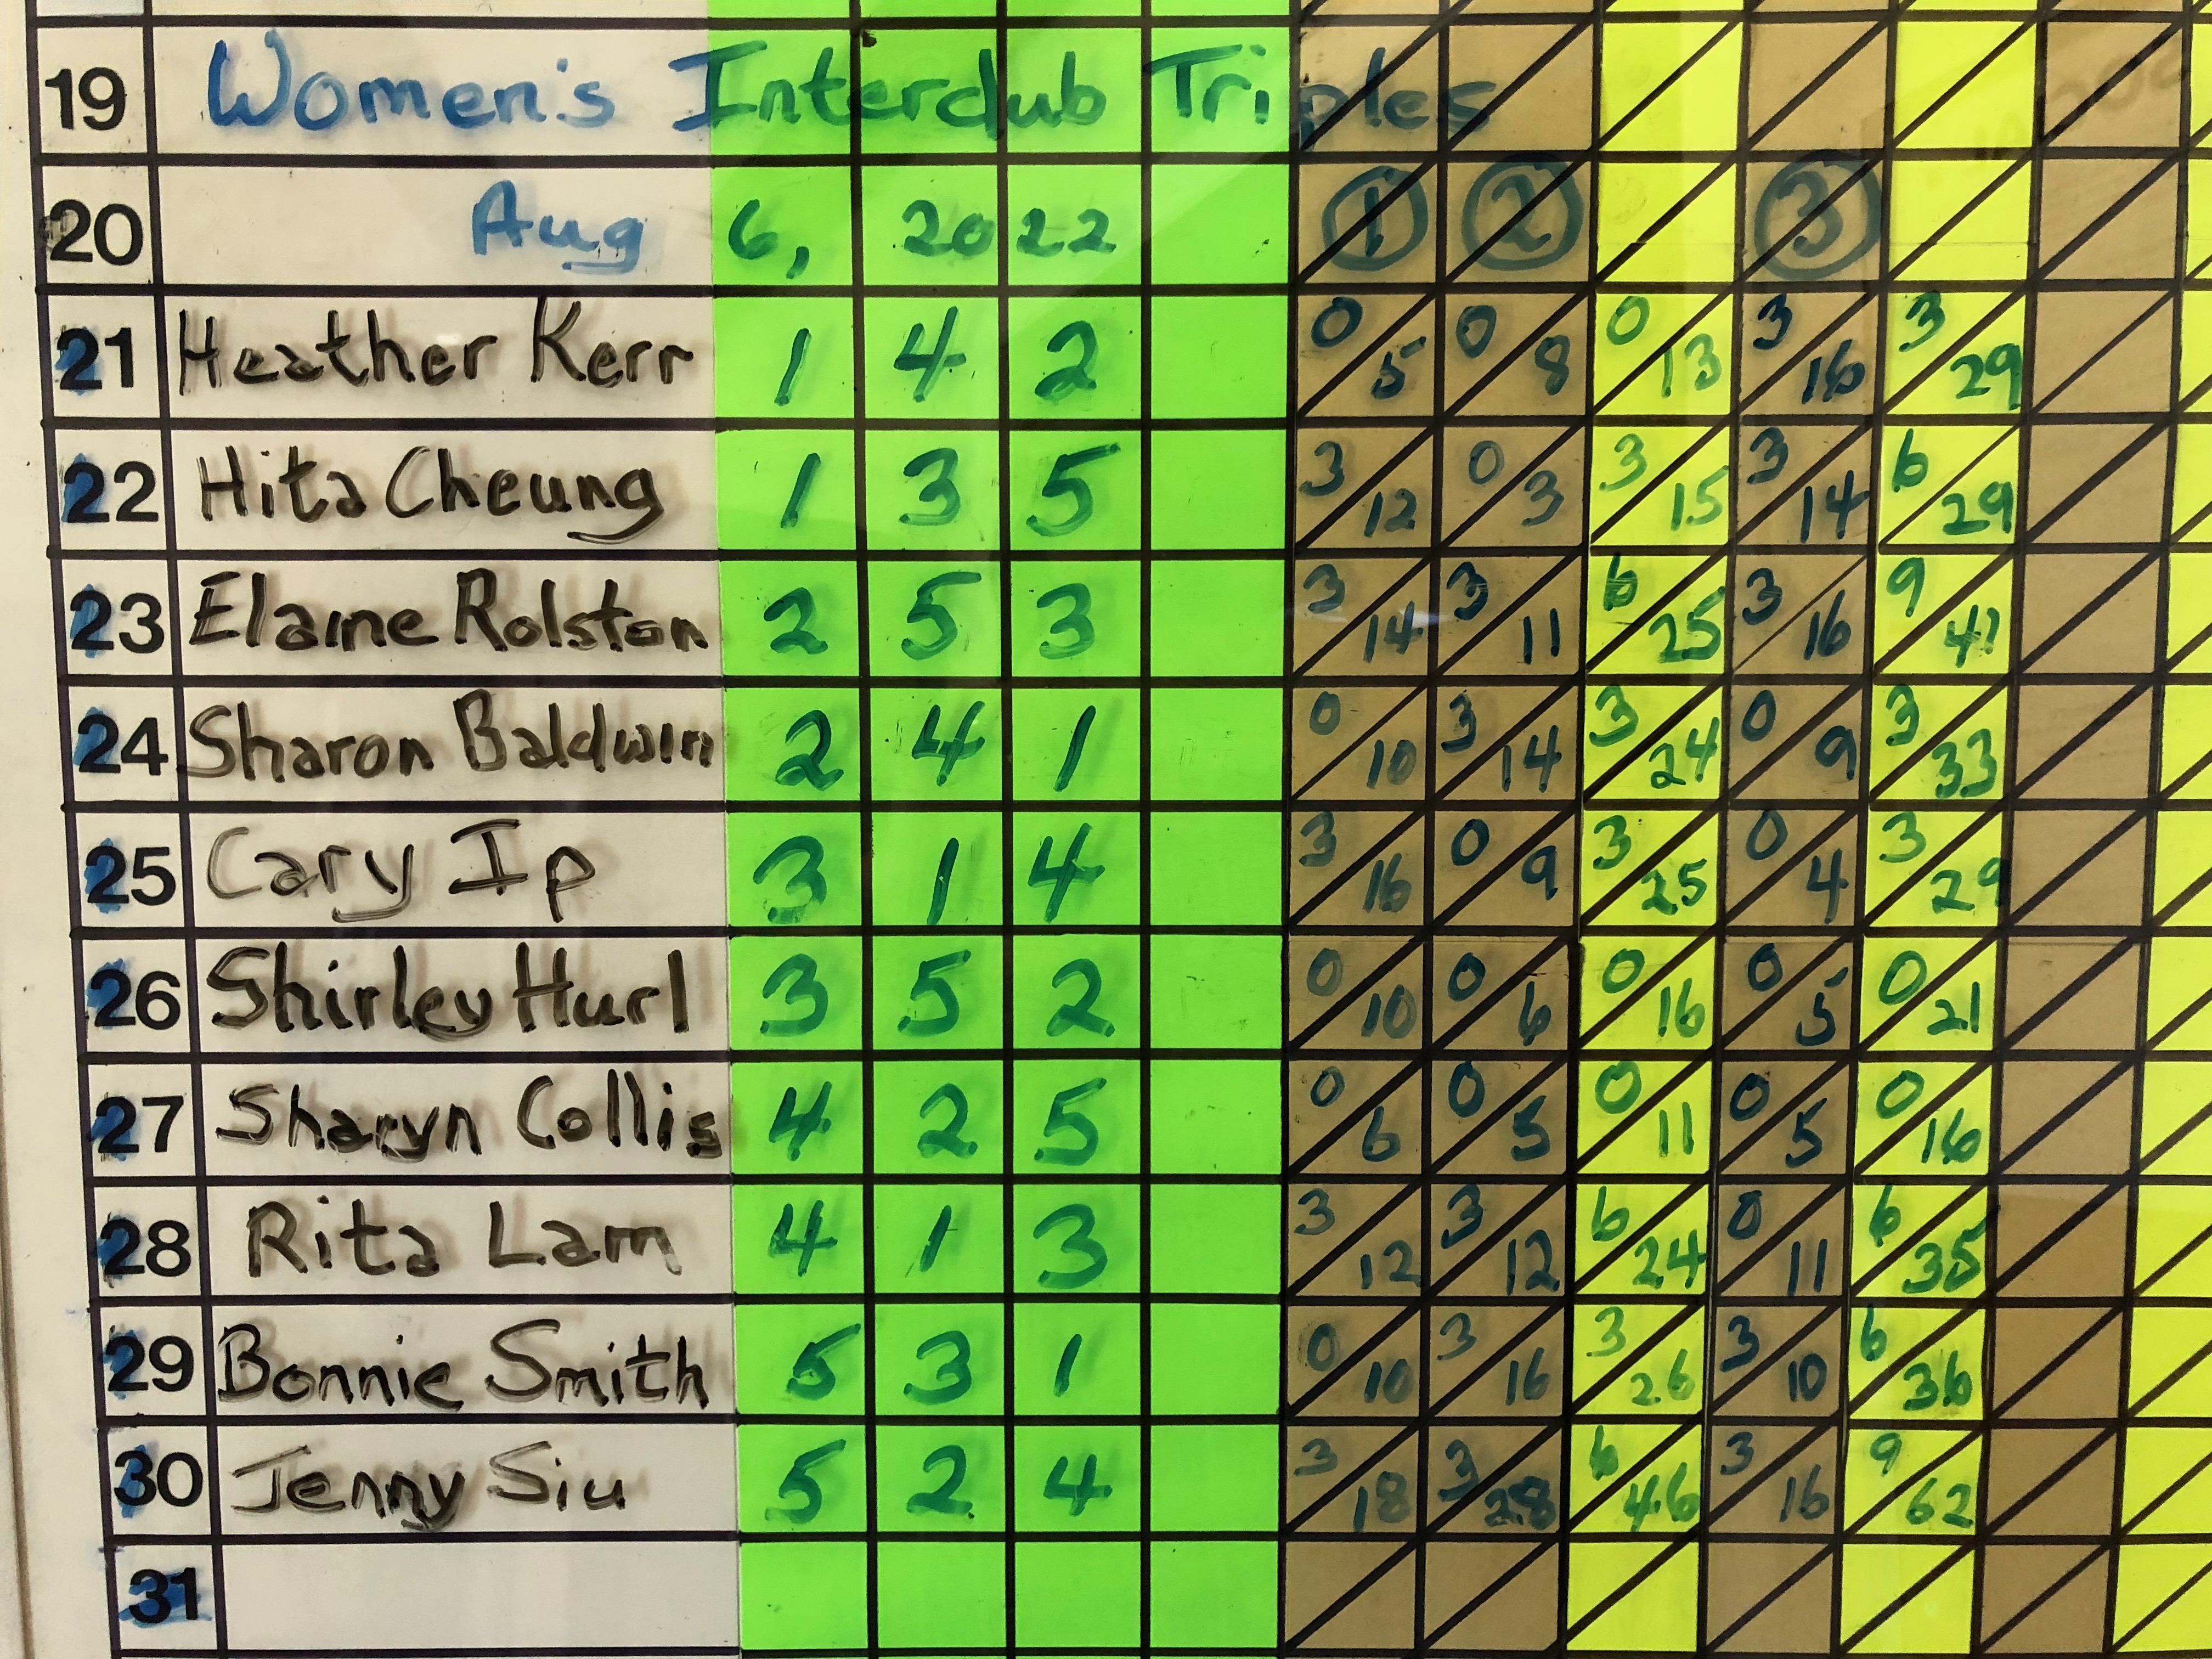 19 Women's Interclub Triples
20 Aug 6, 2022 1 2 3
21 Heather Kerr 1 4 2 0/5 0/8 0/13 3/16 3/29
22 Hita Cheung 1 3 5 3/12 0/3 3/15 3/14 6/29
23 Elaine Rolston 2 5 3 3/14 3/11 6/25 3/16 9/41
24 Sharon Baldwin 2 4 1 0/10 3/14 3/24 0/9 3/33
25 Cary Ip 3 1 4 3/16 0/9 3/25 0/4 3/29
26 Shirley Hurl 3 5 2 0/10 0/6 0/16 0/5 0/21
27 Sharyn Collis 4 2 5 0/6 0/5 0/11 0/5 0/16
28 Rita Lam 4 1 3 3/12 3/12 6/24 0/11 6/35
29 Bonnie Smith 5 3 1 0/10 3/16 3/26 3/10 6/36
30 Jenny Siu 5 2 4 3/18 3/28 6/46 3/16 9/62
31